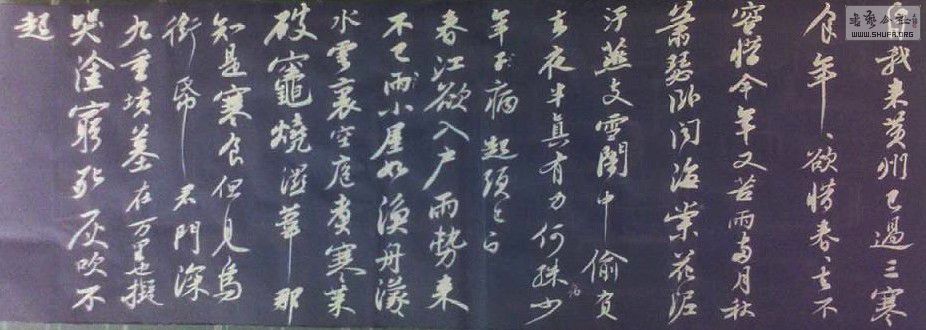 自我来黄州已過三寒
食年、欲惜春、去不
容惜今年又苦雨两月秋
蕭瑟卧闻海棠花泥
汙燕支雪闇中偷負
去夜半真有力何殊少
年子病起须已白
春江欲入户雨勢来
不已雨小屋如漁舟濛
水雲裏空庖煮寒菜
破竈燒濕葦那
知是寒食但見烏
銜帋君門深
九重墳墓在万里也擬
哭塗窮死灰吹不
起
书艺公社
WWW.SHUFA.ORG